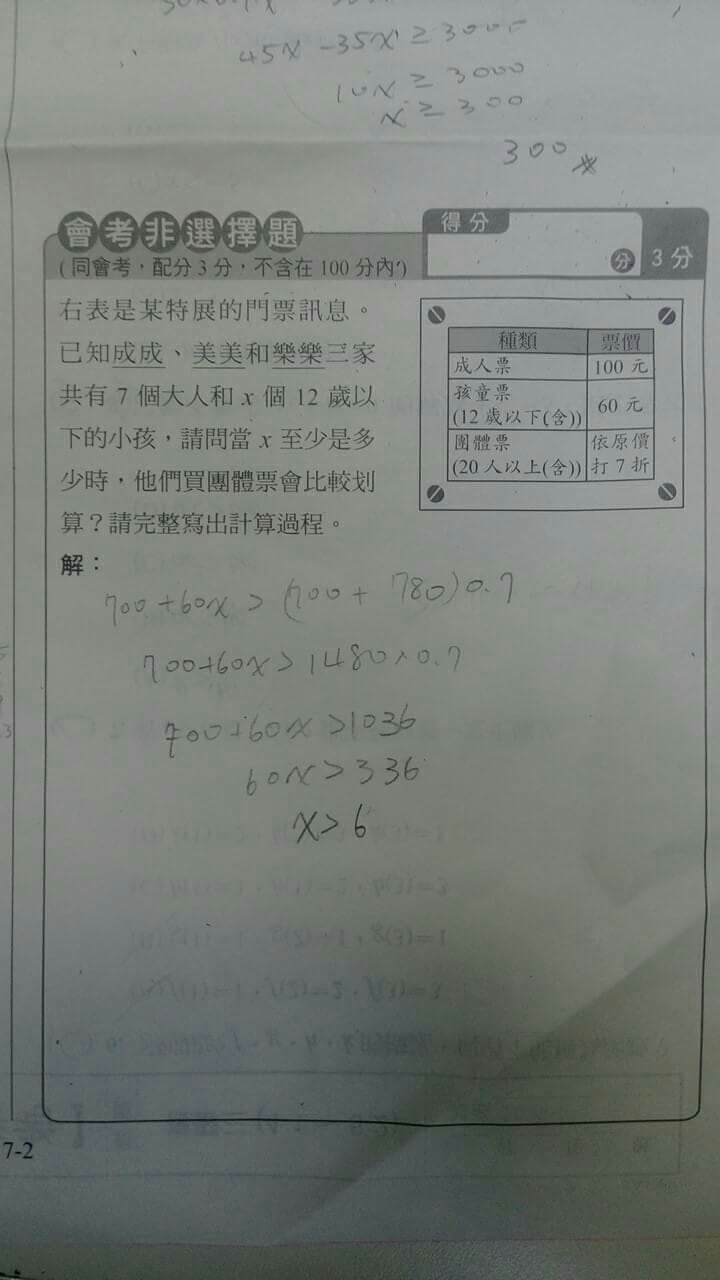 45x - 35x ≥ 3000
10x ≥ 3000
x ≥ 300
300
會考非選擇題
(同會考，配分3分，不含在100分內)
得分
分
3分
右表是某特展的門票訊息。
已知成成、美美和樂樂三家
共有7個大人和x個12歲以
下的小孩，請問當x至少是多
少時，他們買團體票會比較划
算？請完整寫出計算過程。
種類 票價
成人票 100元
孩童票
(12歲以下(含)) 60元
團體票 依原價
(20人以上(含)) 打7折
解：
700+60x > (700 + 780)0.7
700+60x > 1480×0.7
700+60x > 1036
60x > 336
x > 6
7-2